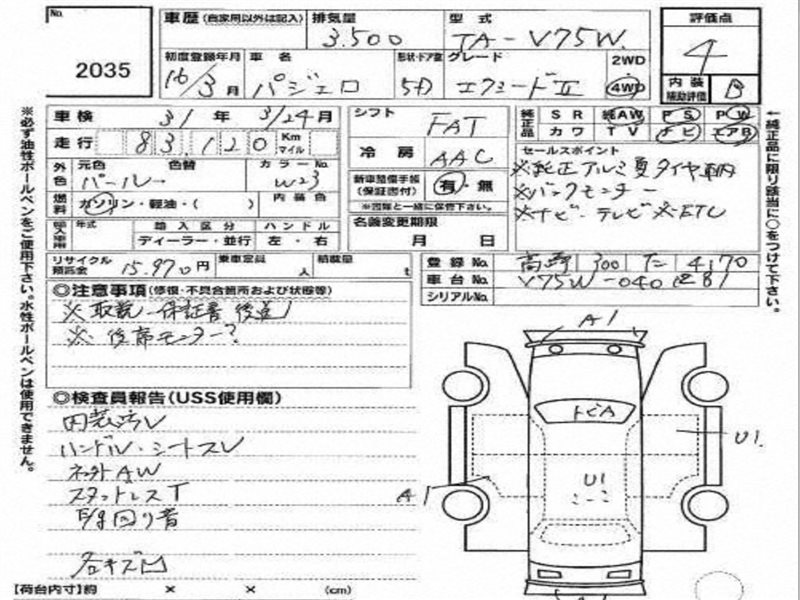 No.
2035
車歴 (自家用以外は記入)
排気量
3.500
型式
TA-V75W
評価点
4
初度登録年月
16/3月
車名
パジェロ
形状・ドア数
5D
グレード
エクシードⅡ
2WD
4WD
内装補助評価
B
車検
31年 3/24月
シフト
FAT
純正品
SR 純AW PS PW
カワ TV ナビ エアB
走行
83,120
Km
マイル
冷房
AAC
セールスポイント
※純正アルミ夏タイヤ車内
※バックモニター
※ナビ・テレビ ※ETC
外色
元色
パール
色替
カラーNo.
W23
新車整備手帳(保証書付)
有・無
※因車と一緒に保管下さい。
燃料
ガソリン・軽油・( )
内装色
輸入車用
年式
輸入区分
ディーラー・並行
ハンドル
左・右
名義変更期限
月 日
リサイクル預託金
15.970円
乗車定員
人
積載量
t
登録No.
高崎 300 た 4170
車台No.
V75W-0401281
シリアルNo.
◎注意事項(修復・不具合箇所および状態等)
※取説 保証書 後送
※ 後席モニター?
◎検査員報告(USS使用欄)
内装汚レ
ハンドル・シートスレ
ネジ外AW
スタットレスT
E/g回り音
各キズ凹
A1
トビA
U1
U1.
A1
【荷台内寸】約 × × (cm)
※必ず油性ボールペンをご使用下さい。水性ボールペンは使用できません。
←純正品に限り該当に○をつけて下さい。